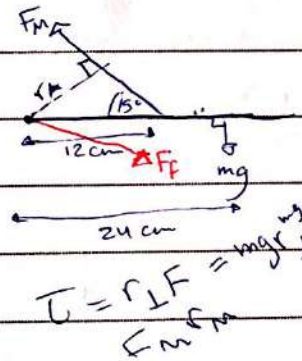 F_M
r_M
15°
12 cm
F_F
mg
24 cm
τ = r⊥F = mgr_mg
F_M r_M